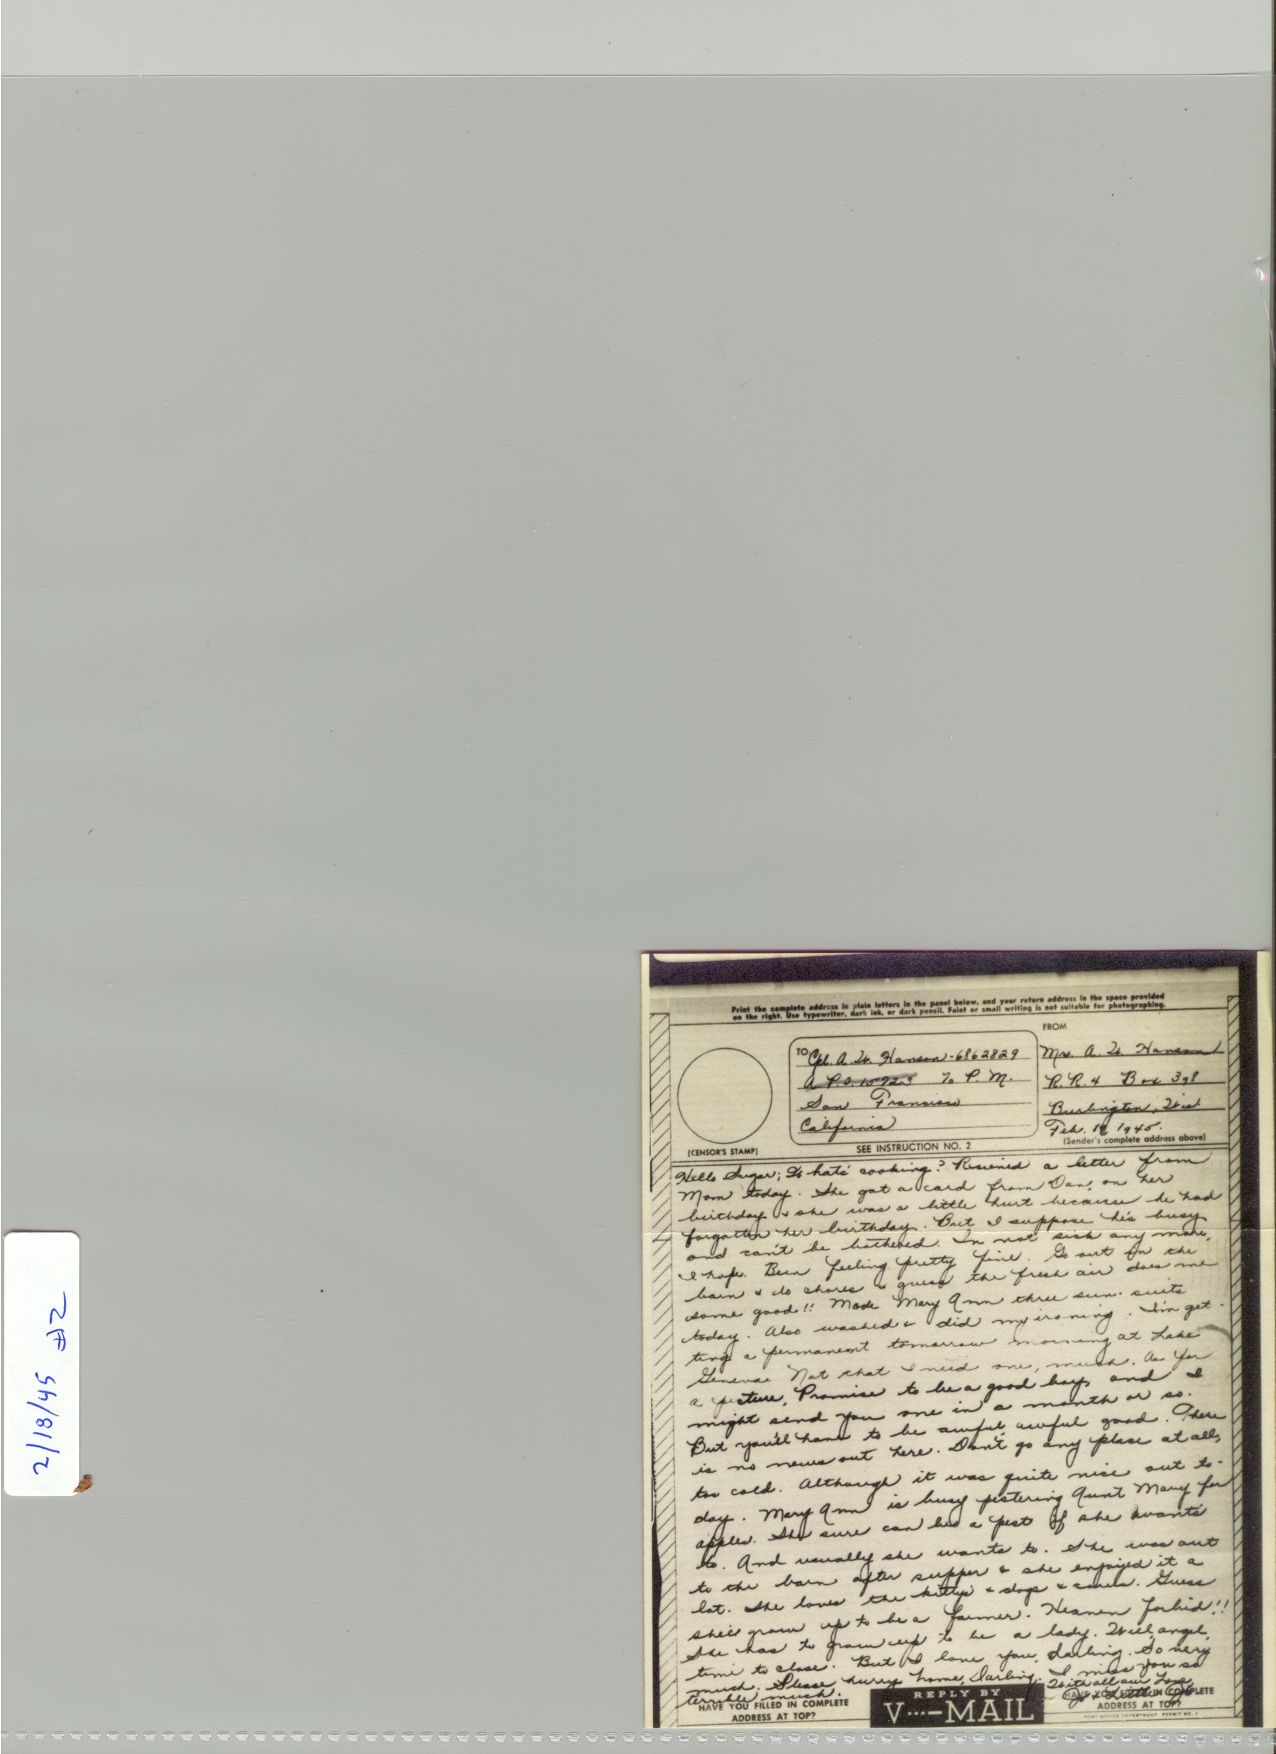 Print the complete address in plain letters in the panel below, and your return address in the space provided
on the right. Use typewriter, dark ink, or dark pencil. Faint or small writing is not suitable for photographing.
FROM
TO
Cpl. A. W. Hanson-6862829
A.P.O. % P. M.
San Francisco
California
(CENSOR'S STAMP)
SEE INSTRUCTION NO. 2
Mrs. A. W. Hanson
R.R. 4 Box 398
Burlington, Wis
Feb. 18, 1945.
(Sender's complete address above)
Hello Sugar; Whats' cooking? Recieved a letter from
Mom today. She got a card from Dan, on her
birthday & she was a little hurt because he had
forgotten her birthday. But I suppose he's busy
and can't be bothered. I'm not sick any more,
I hope. Been feeling pretty fine. Go out in the
barn & do chores & guess the fresh air does me
some good!! Made Mary Ann three sun-suits
today. Also washed & did my ironing. I'm get-
ting a permanent tomorrow morning at Lake
Geneva. Not that I need one, much. As for
a picture, Promise to be a good boy, and I
might send you one in a month or so.
But you'll have to be awful awful good. There
is no news out here. Don't go any place at all,
too cold. Although it was quite nice out to-
day. Mary Ann is busy pestering Aunt Mary for
apples. She sure can be a pest if she wants
to. And usually she wants to. She was out
to the barn after supper & she enjoyed it a
lot. She loves the kittys & dogs & cows. Guess
she'll grow up to be a farmer. Heaven forbid!!
She has to grow up to be a lady. Well, angel,
time to close. But I love you, darling. So very
much. Please hurry home, Darling. I miss you so
terrible much. With all our Love
Jo & Little Jo
HAVE YOU FILLED IN COMPLETE
ADDRESS AT TOP?
REPLY BY
V···—MAIL
HAVE YOU FILLED IN COMPLETE
ADDRESS AT TOP?
POST OFFICE DEPARTMENT PERMIT NO. 1
2/18/45 #2